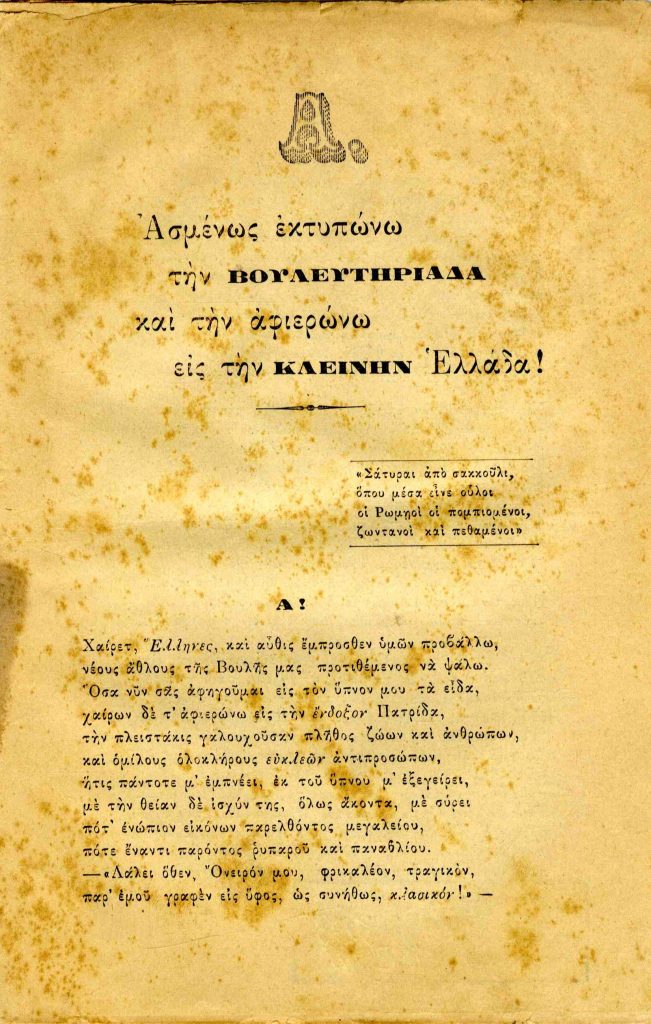 Α.
Ἀσμένως ἐκτυπώνω
τὴν ΒΟΥΛΕΥΤΗΡΙΑΔΑ
καὶ τὴν ἀφιερώνω
εἰς τὴν ΚΛΕΙΝΗΝ Ἑλλάδα!
«Σάτυραι ἀπὸ σακκοῦλι,
ὅπου μέσα εἶνε οὗλοι
οἱ Ρωμῃοὶ οἱ πομπιομένοι,
ζωντανοὶ καὶ πεθαμένοι»
Α!
Χαίρετ, Ἕλληνες, καὶ αὖθις ἔμπροσθεν ὑμῶν προβάλλω,
νέους ἄθλους τῆς Βουλῆς μας προτιθέμενος νὰ ψάλω.
Ὅσα νῦν σᾶς ἀφηγοῦμαι εἰς τὸν ὕπνον μου τὰ εἶδα,
χαίρων δὲ τ' ἀφιερώνω εἰς τὴν ἔνδοξον Πατρίδα,
τὴν πλειστάκις γαλουχοῦσαν πλῆθος ζώων καὶ ἀνθρώπων,
καὶ ὁμίλους ὁλοκλήρους εὐκλεῶν ἀντιπροσώπων,
ἥτις πάντοτε μ' ἐμπνέει, ἐκ τοῦ ὕπνου μ' ἐξεγείρει,
μὲ τὴν θείαν δὲ ἰσχύν της, ὅλως ἄκοντα, μὲ σύρει
πότ' ἐνώπιον εἰκόνων παρελθόντος μεγαλείου,
πότε ἔναντι παρόντος ῥυπαροῦ καὶ παναθλίου.
—«Λάλει ὅθεν, Ὄνειρόν μου, φρικαλέον, τραγικὸν,
παρ' ἐμοῦ γραφὲν εἰς ὕφος, ὡς συνήθως, κλασικόν!» —